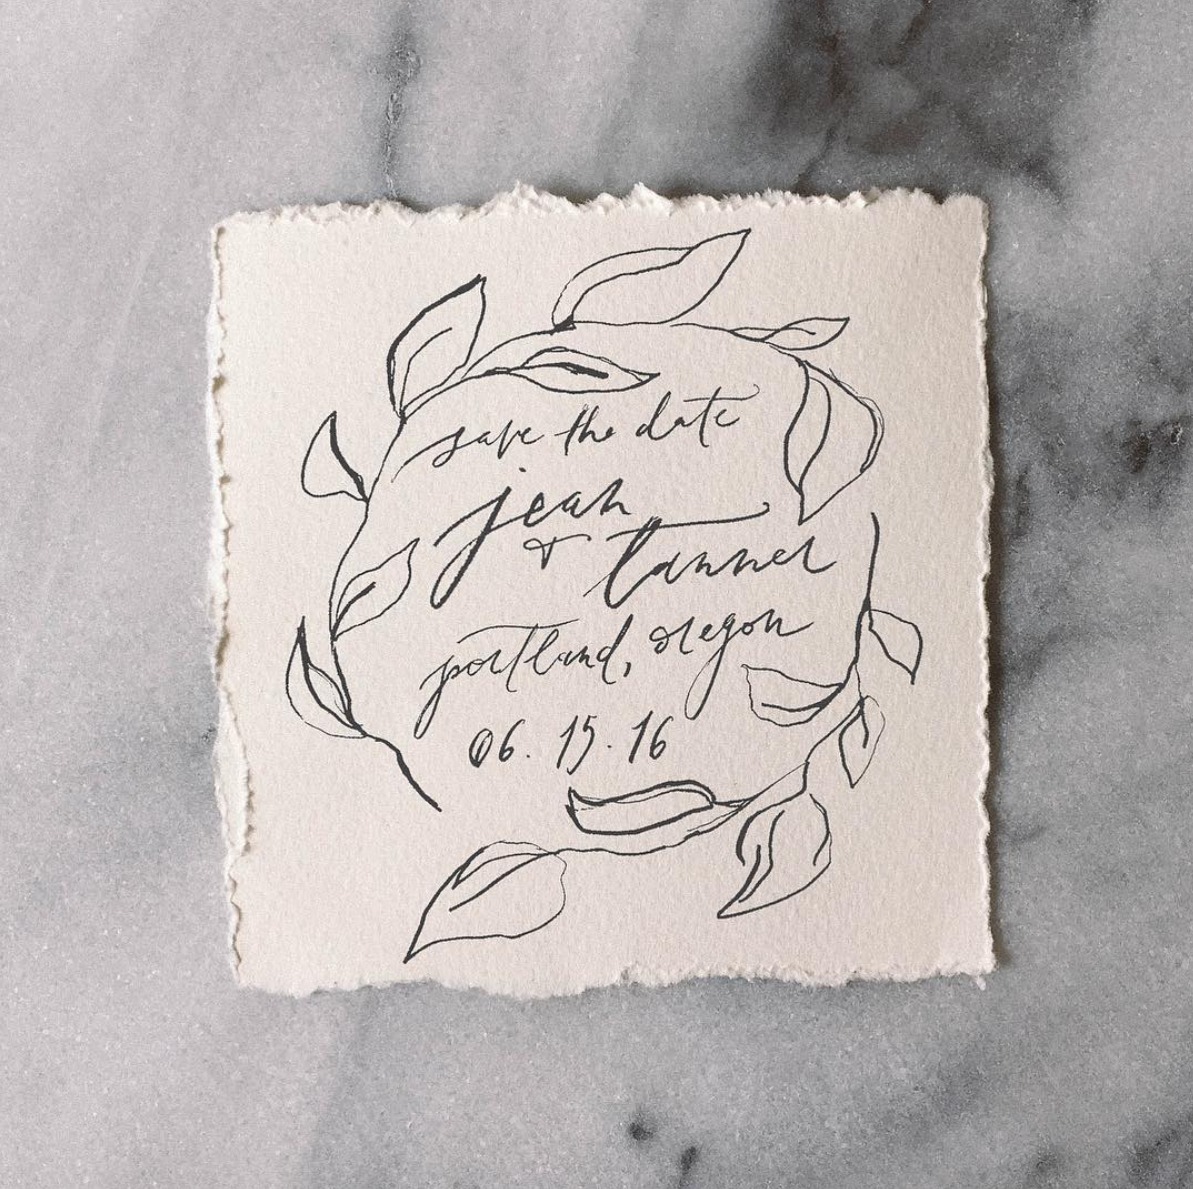 save the date
jean
& tanner
portland, oregon
06.15.16